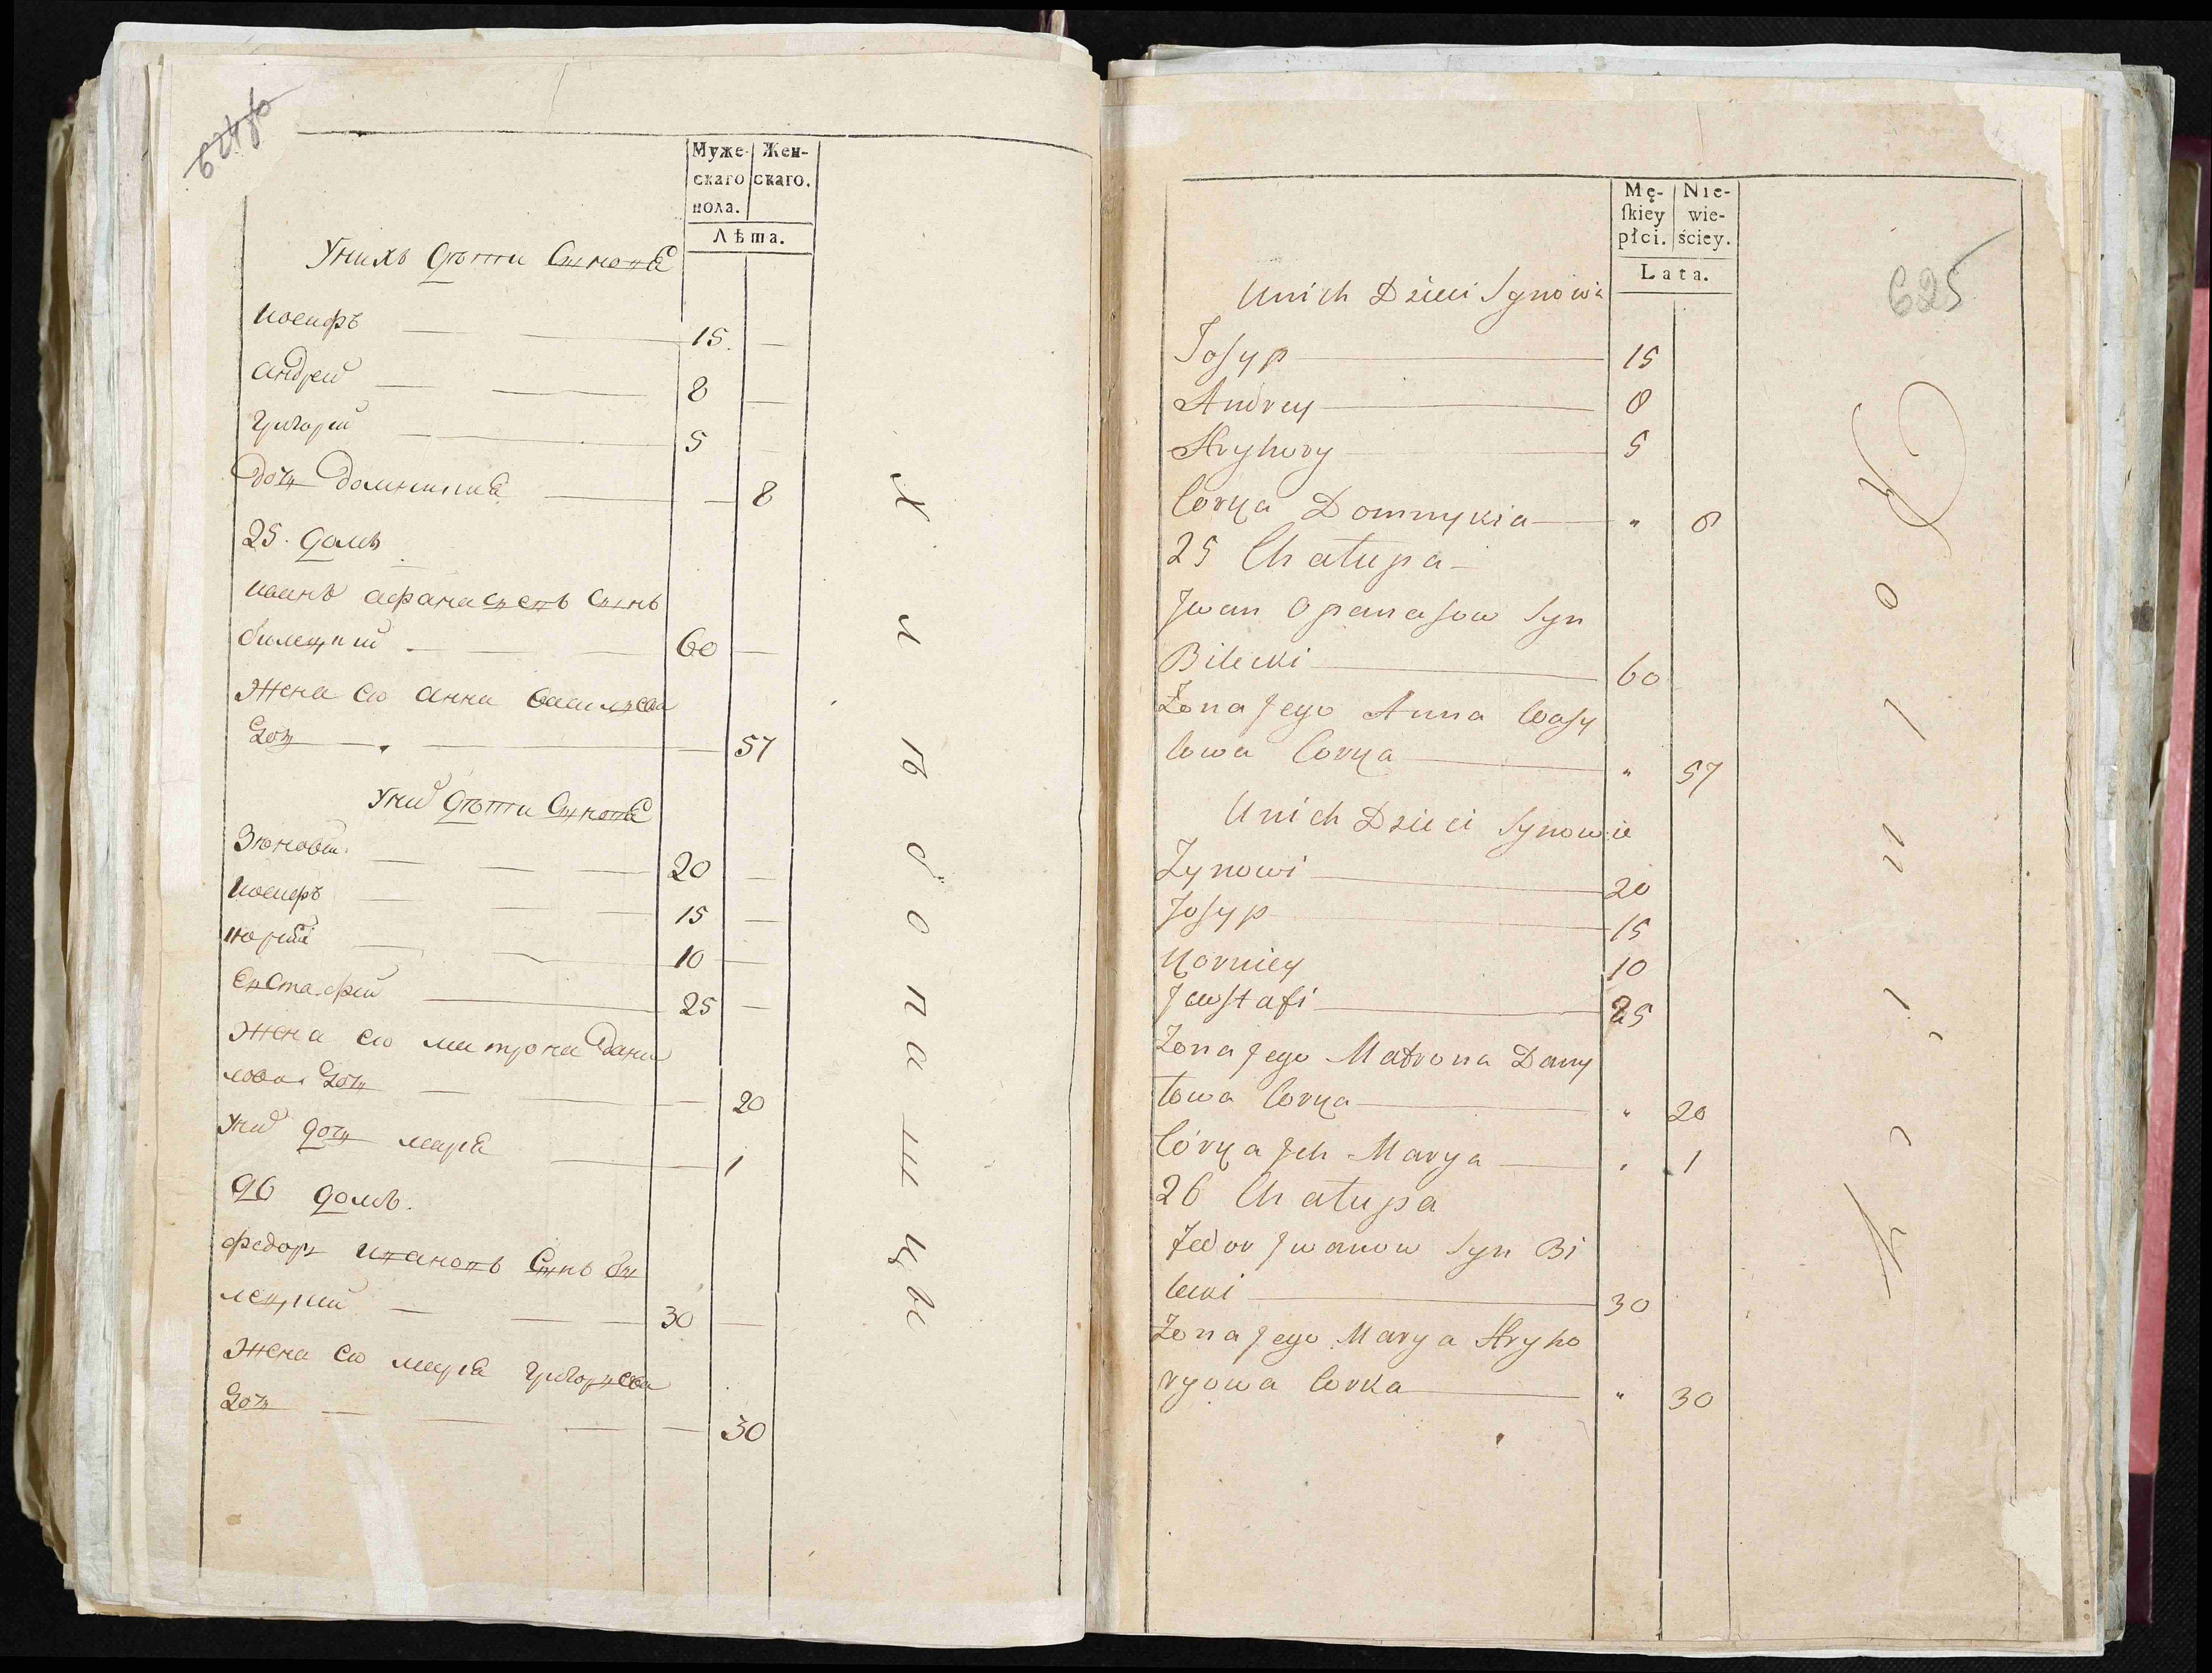 624 об
Муже-
скаго
пола.
Жен-
скаго.
Лѣта.
У нихъ дѣти Синовѣ
Иосифъ 15
Андрей 8
Григорий 5
Дочь Домникиѣ 8
25. домъ
Иванъ Афанасьевъ Синъ
Билецкий 60
Жена ею Анна Васильева
Дочь 57
У ний дѣти Синовѣ
Зѣновий 20
Иосифъ 15
10
Евстафий 25
Жена ею Матрона Дани
лова Дочь 20
У ний дочь Мариѣ 1
26 домъ.
Федоръ Ивановъ Синъ Би
лецкий 30
Жена ею Мариѣ Григорьева
Дочь 30
Хлѣбопашцы
625
Mę-
ſkiey
płci.
Nie-
wie-
ściey.
Lata.
Unich Dzieci Synowie
Josyp 15
Andrey 8
Hryhory 5
Corka Domnykia " 8
25 Chałupa
Jwan Opanasow Syn
Bilecki 60
Żona Jego Anna Wasy
lowa Corka " 57
Unich Dzieci Synowie
Zynowi 20
Josyp 15
Korniey 10
Jewstafi 25
Żona Jego Matrona Dany
łowa Corka " 20
Córka Jch Marya " 1
26 Chałupa
Fedor Jwanow Syn Bi
lecki 30
Żona Jego Marya Hryho
ryowa Corka " 30